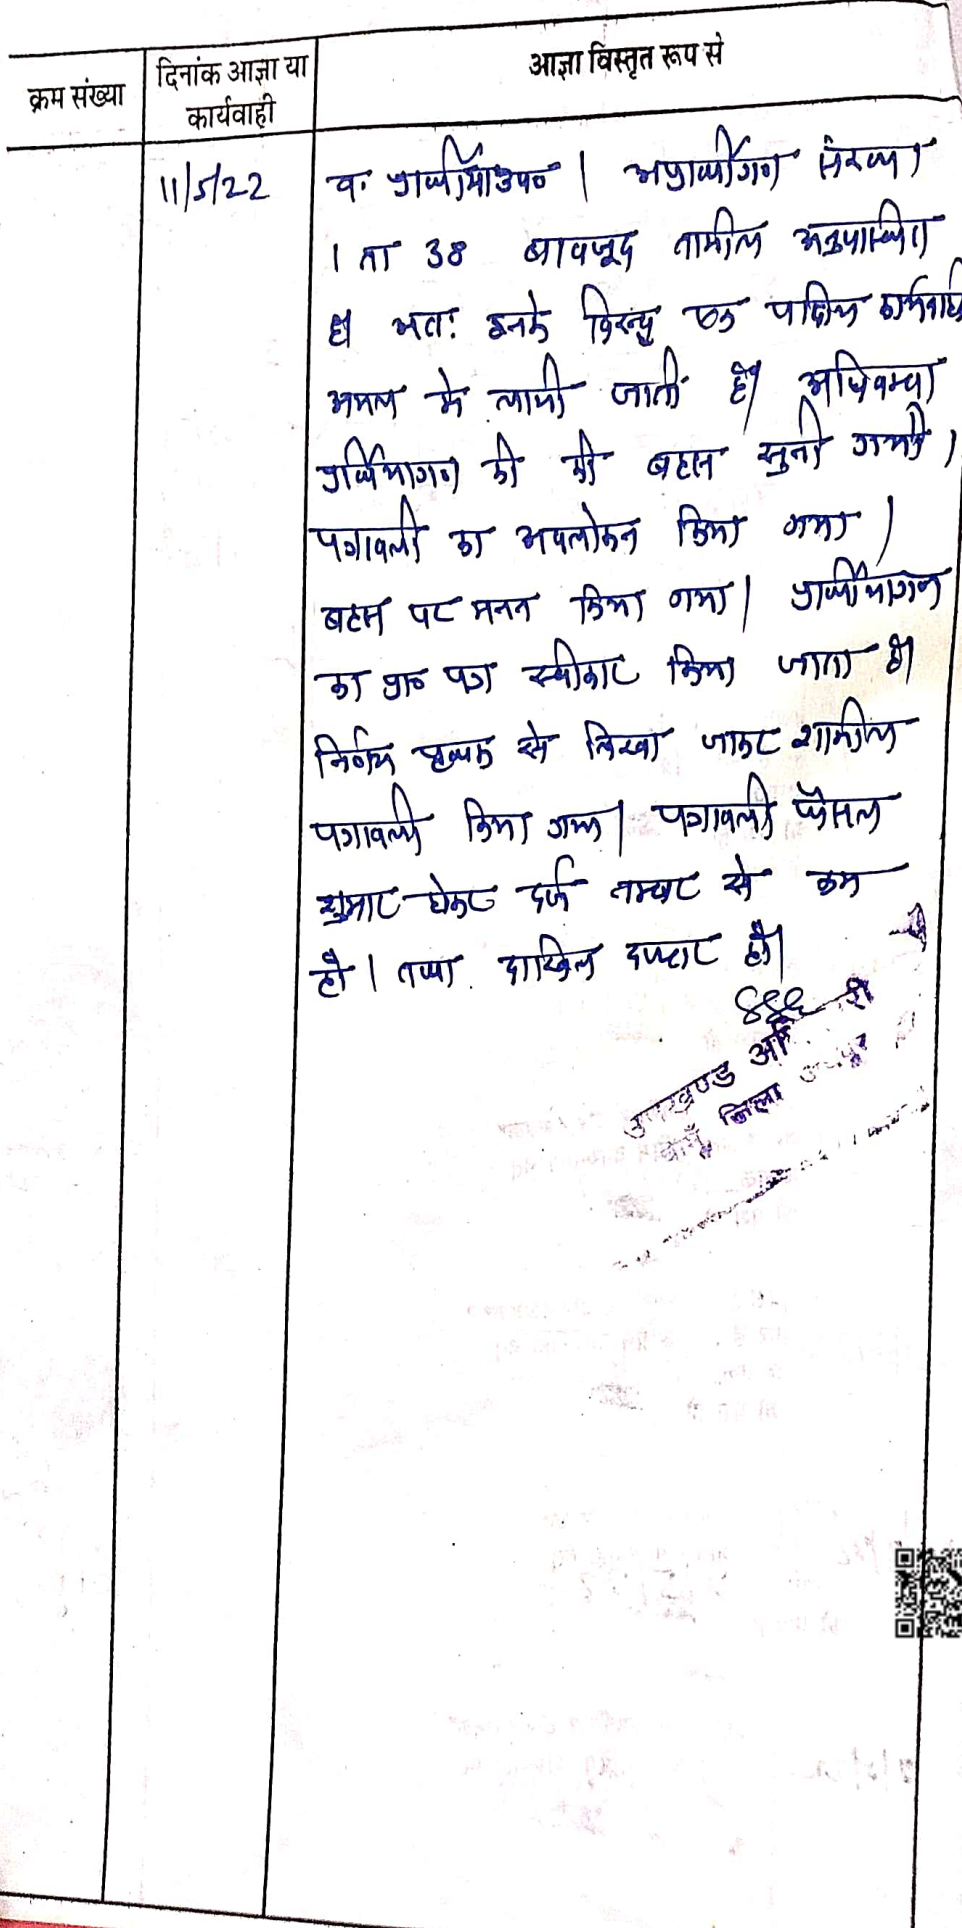 क्रम संख्या
दिनांक आज्ञा या
कार्यवाही
आज्ञा विस्तृत रूप से
11/5/22
व. प्रार्थीया उप० | अप्रार्थीगण संख्या
1 ता 38 बावजूद तामील अनुपस्थित
है अतः इनके विरुद्ध एक पक्षीय कार्यवाही
अमल मे लायी जाती है। अधिवक्ता
प्रार्थियागण की बहस सुनी गयी।
पत्रावली का अवलोकन किया गया।
बहस पर मनन किया गया। प्रार्थीयागण
का प्रा० पत्र स्वीकार किया जाता है।
निर्णय पृथक से लिखा जाकर शामील
पत्रावली किया गया। पत्रावली फैसल
शुमार होकर दर्ज नम्बर से कम
हो। तथा दाखिल दफ्तर हो।
उपखण्ड
जिला